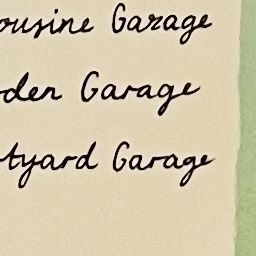 ousine Gazage
den Garage
tyard Garage